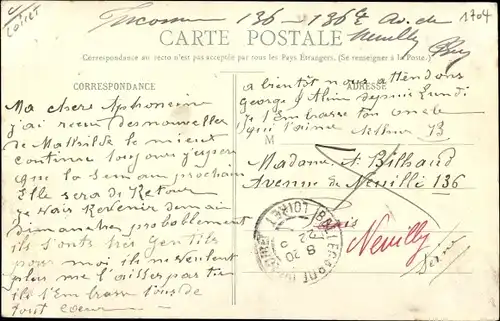 Loiret
Inconnu 136 - 136 Av. de
Neuilly
1704
CARTE POSTALE
Correspondance au recto n'est pas acceptée par tous les Pays Étrangers. (Se renseigner à la Poste.)
CORRESPONDANCE
Ma chere Alphonsine
j'ai recu des nouvelles
de Mathilde le mieux
continue toujours j'espere
que la semain prochain
Elle sera de Retour
je vais Revenir demain
dimanche probablement
ils sont trés gentils
pour moi ils ne veulent
plus me laisser partir
ils t'Embrasse tous de
tout coeur
a bientôt nous attendons
ADRESSE
george & Alin depuis Lundi
Je t'Embrasse ton oncle
qui t'aime
M
Madame A. Bilhaud
Avenue de Neuillé 136
Neuilly
Seine
LOIRET